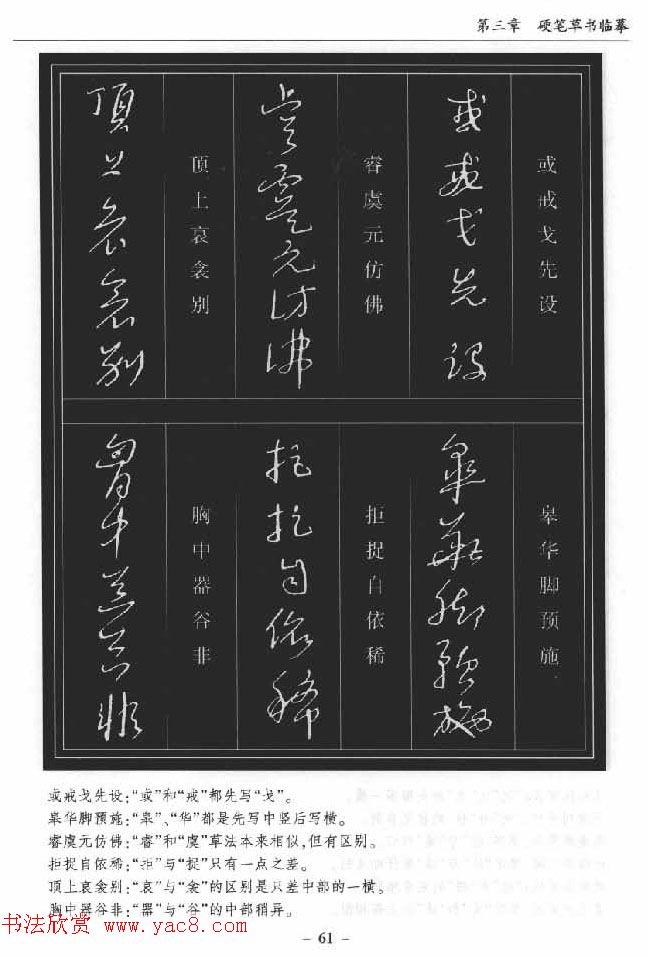 第三章 硬笔草书临摹
或戒戈先设
或戒戈先设
睿虞元仿佛
睿虞元仿佛
顶上哀衾别
頂上哀衾别
皋华脚预施
皋華脚預施
拒捉自依稀
拒捉自依稀
胸中器谷非
胸中器谷非
或戒戈先设:“或”和“戒”都先写“戈”。
皋华脚预施:“皋”、“华”都是先写中竖后写横。
睿虞元仿佛:“睿”和“虞”草法本来相似,但有区别。
拒捉自依稀:“拒”与“捉”只有一点之差。
顶上哀衾别:“哀”与“衾”的区别是只差中部的一横。
胸中器谷非:“器”与“谷”的中部稍异。
书法欣赏 www.yac8.com
- 61 -